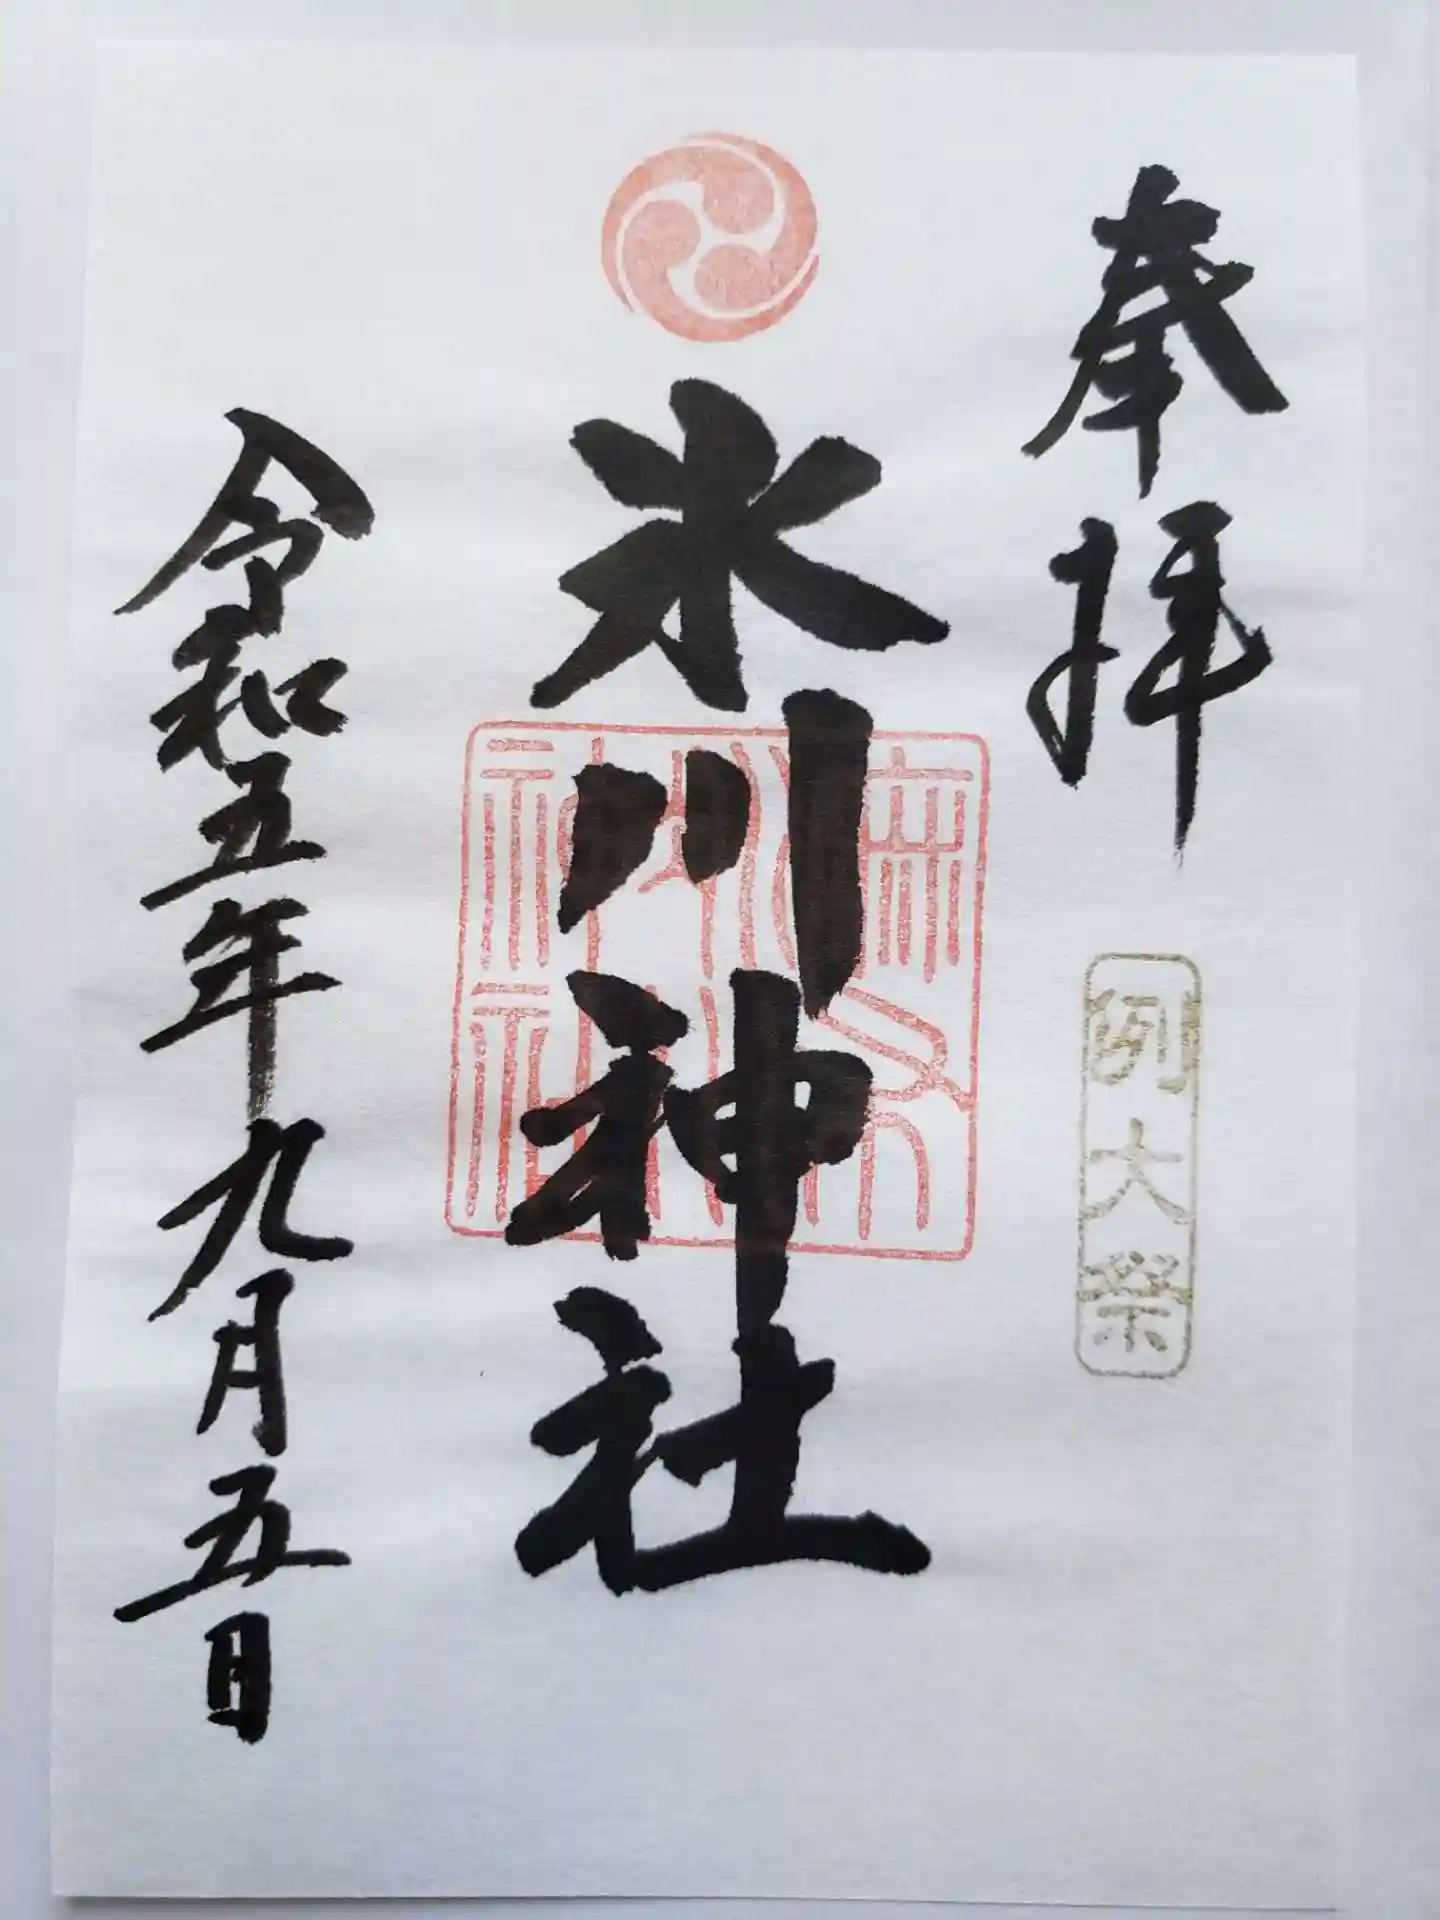 奉拝
例大祭
麻布
氷川
神社
氷川神社
令和五年九月五日